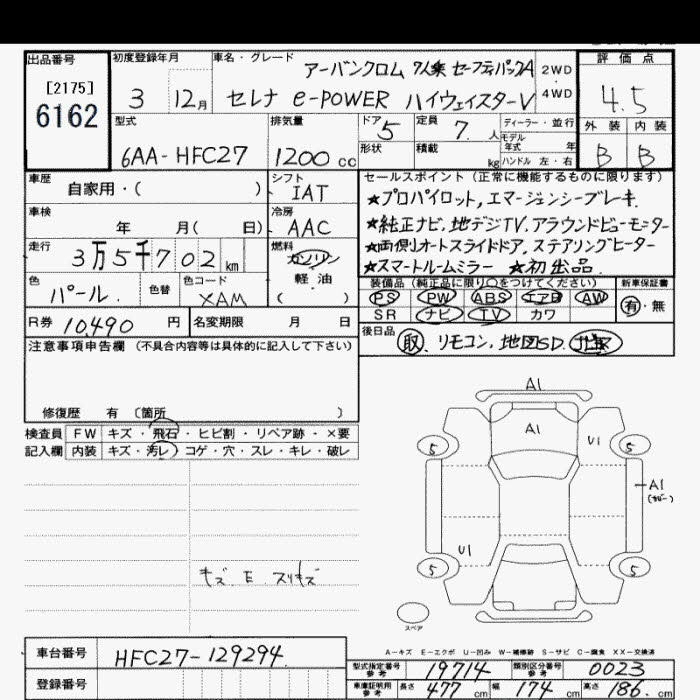 出品番号
[2175]
6162
初度登録年月
3 12月
車名・グレード
アーバンクロム 7人乗 セーフティパックA
セレナ e-POWER ハイウェイスターV
2WD
4WD
評価点
4.5
外装 内装
B B
型式
6AA-HFC27
排気量
1200 cc
ドア 5
形状
定員 7. 人
積載 kg
ディーラー・並行
モデル年式 年
ハンドル 左・右
車歴 自家用・( )
シフト IAT
車検 年 月( 日)
冷房 AAC
走行 3万5千702 km
燃料 ガソリン
軽油
色 パール. 色替
色コード XAM
R券 10,490 円
名変期限 月 日
セールスポイント (正常に機能するものに限ります)
★プロパイロット, エマージェンシーブレーキ.
★純正ナビ, 地デジTV, アラウンドビューモニター
★両側オートスライドドア, ステアリングヒーター
★スマートルームミラー ★初出品.
装備品 (純正品に限り○をつけてください)
PS PW ABS エアB AW
SR ナビ TV カワ
新車保証書
有・無
後日品
取, リモコン, 地図SD,
注意事項申告欄 (不具合内容等は具体的に記入して下さい)
修復歴 有 〔箇所 〕
検査員 記入欄
FW キズ・飛石・ヒビ割・リペア跡・×要
内装 キズ・汚レ・コゲ・穴・スレ・キレ・破レ
キズ E スリキズ
A1
A1
U1
5
5
A1
(カバー)
U1
5
5
スペア
A-キズ E-エクボ U-凹み W-補修跡 S-サビ C-腐食 XX-交換済
車台番号 HFC27-129294
登録番号
型式指定番号 参考 19714
類別区分番号 参考 0023
車庫証明用 参考 長さ 477 cm 幅 174 cm 高さ 186. cm